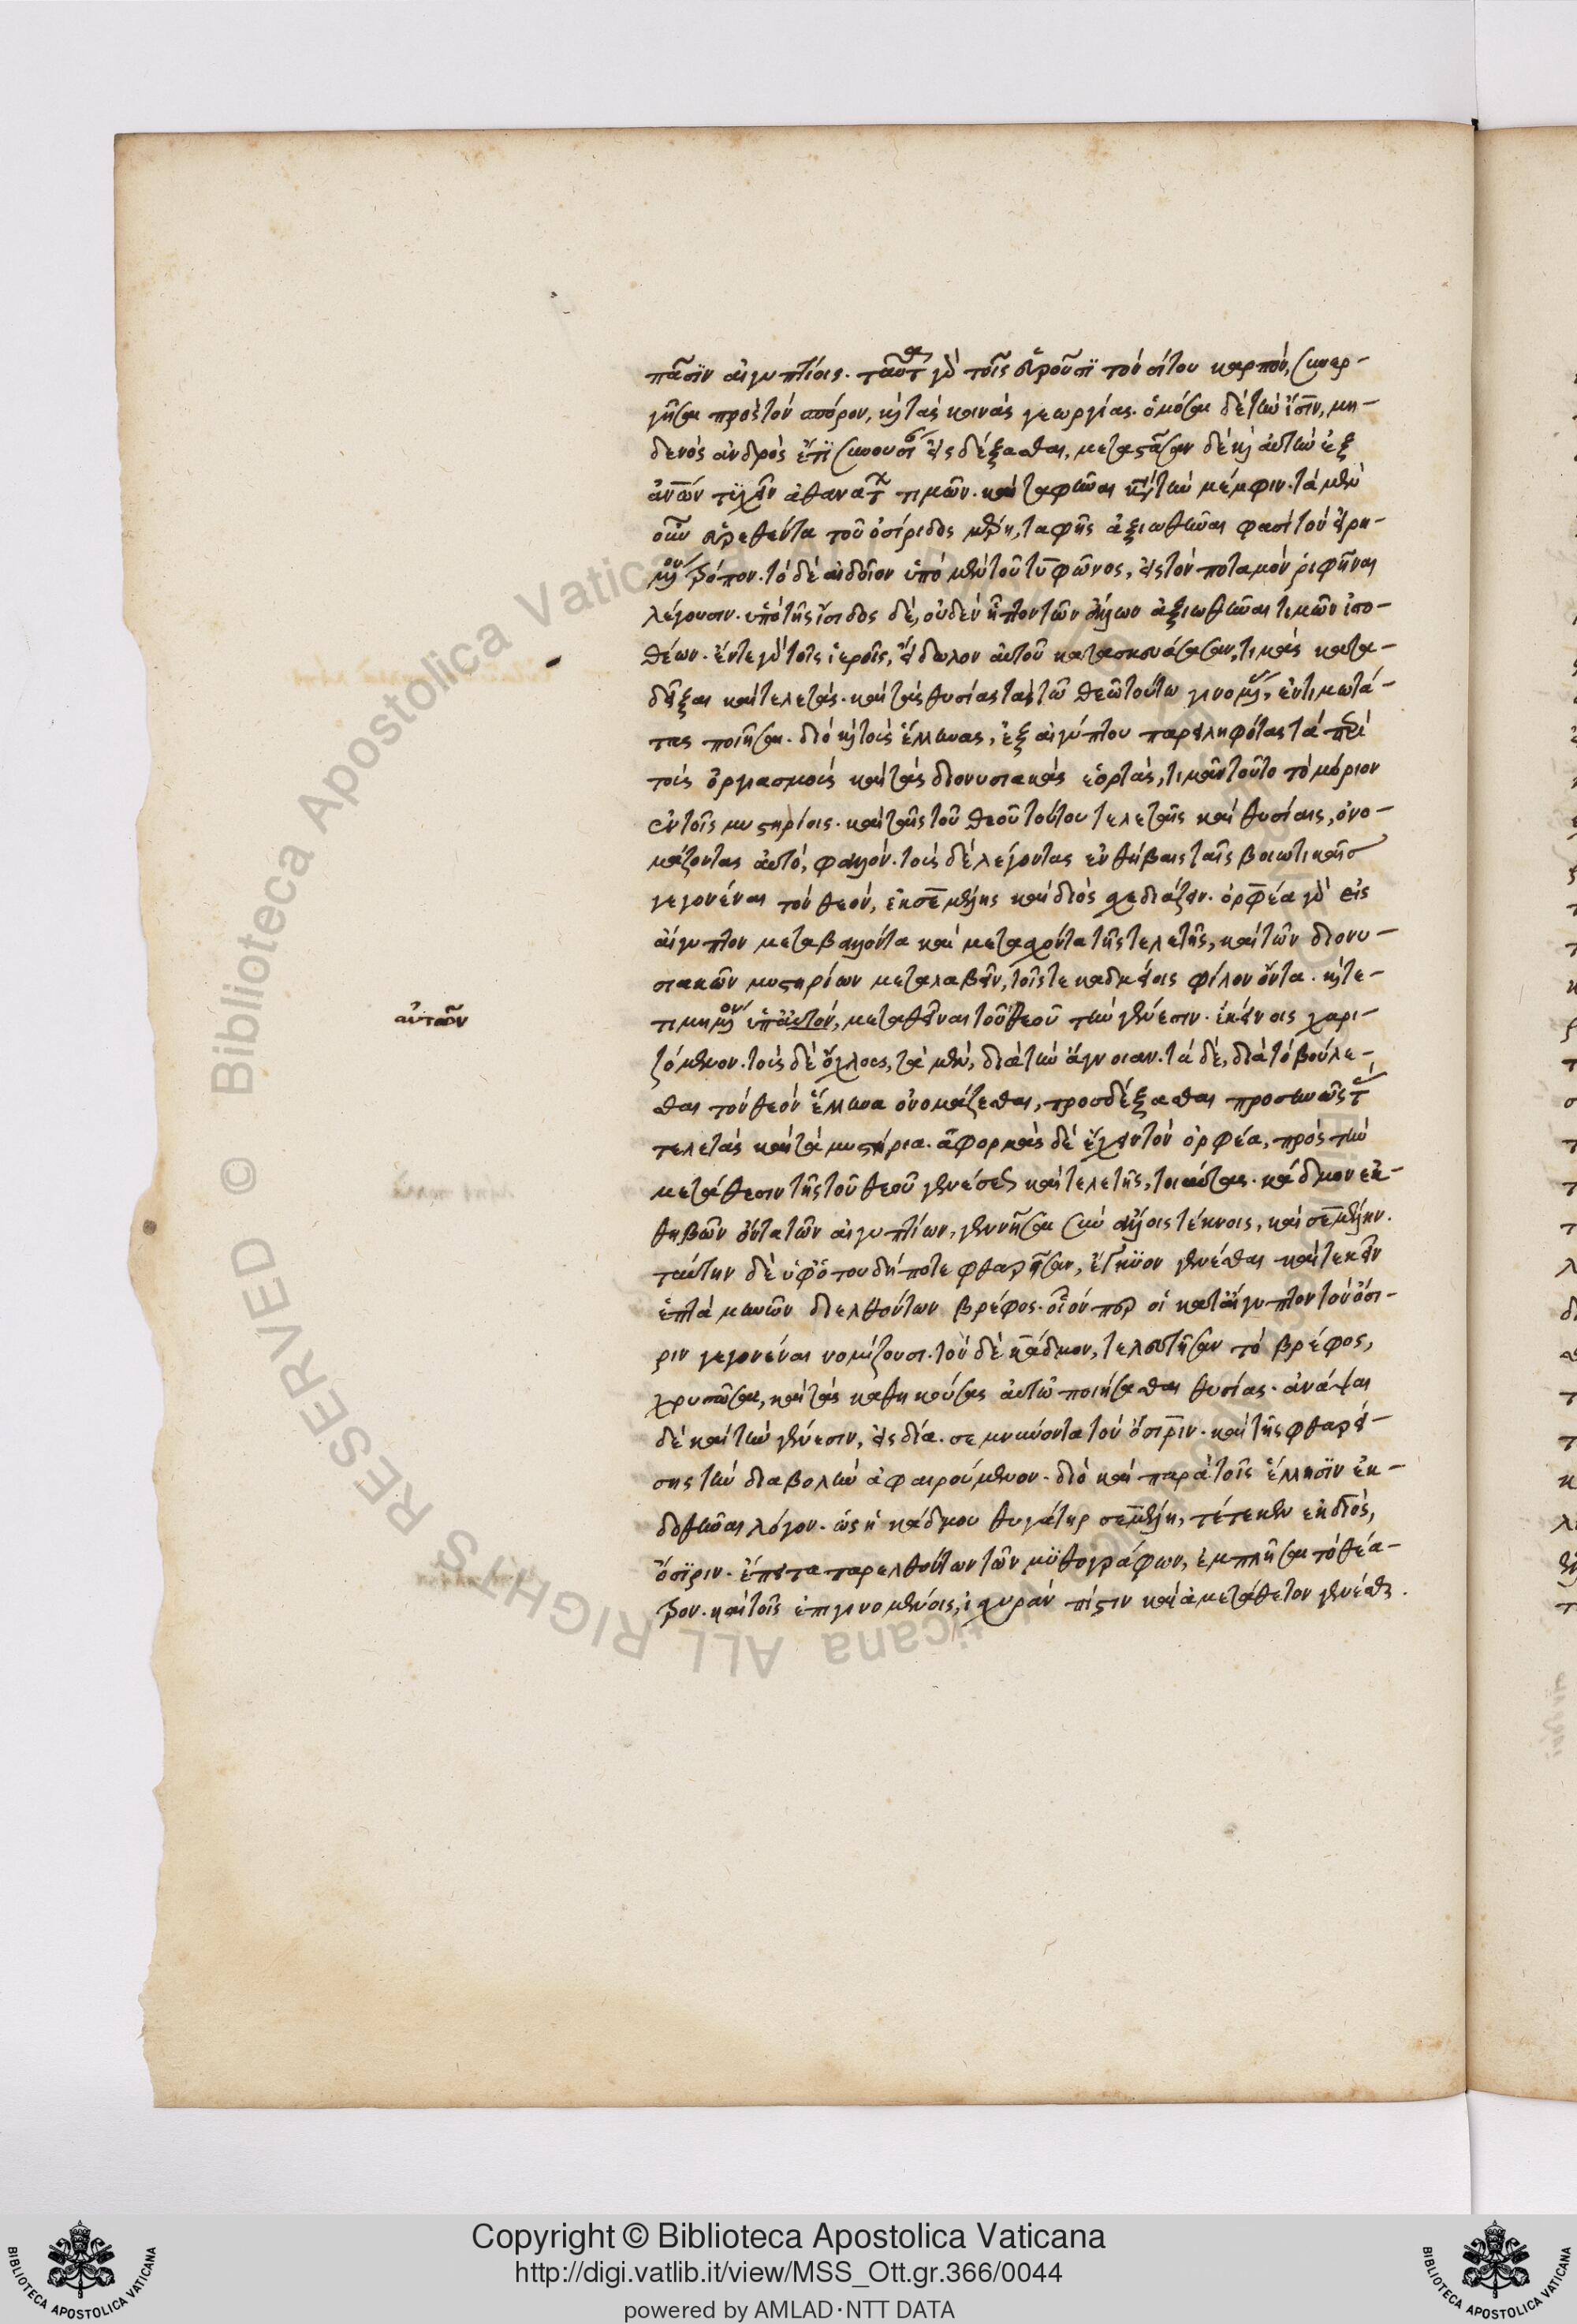 πᾶσϊν αἰγυπτίοις. ταῦτα γὰρ τοῖς εὑροῦσϊ τὸν σίτου καρπόν, συνερ-
γῆσαι πρὸς τὸν σπόρον, καὶ τὰς κοινὰς γεωργίας. ὀμόσαι δὲ τὴν ἶσϊν, μη-
δενὸς ἀνδρὸς ἔτι συνουσίαν εἰσδέξασθαι, μεταστᾶσαν δὲ καὶ αὐτὴν ἐξ
ἀνων τυχεῖν ἀθανάτων τιμῶν. καὶ ταφῆναι κατὰ τὴν μέμφιν. τὰ μὲν
οὖν εὑρεθέντα τοῦ ὀσίριδος μέρη, ταφῆς ἀξιωθῆναι φασὶ τὸν εἰρη-
μένον τρόπον. τὸ δὲ αἰδοῖον ὑπὸ μὲν τοῦ τυφῶνος, εἰς τὸν ποταμὸν ῥιφῆναι
λέγουσιν. ὑπὸ τῆς ἴσιδος δὲ, οὐδὲν ἧττον τῶν ἄλλων ἀξιωθῆναι τιμῶν ἰσο-
θέων. ἔν τε γὰρ τοῖς ἱεροῖς, εἴδωλον αὐτοῦ κατασκευάσασαν, τιμὰς κατα-
δεῖξαι καὶ τελετάς. καὶ τὰς θυσίας τὰς τῶ θεῶ τούτω γινομένας, ἐντιμωτά-
τας ποιῆσαι. διὸ καὶ τοὺς ἕλληνας, ἐξ αἰγύπτου παρειληφότας τὰ περὶ
τοὺς ὀργιασμοὺς καὶ τὰς διονυσιακὰς ἑορτάς, τιμᾶν τοῦτο τὸ μόριον
ἐν τοῖς μυστηρίοις. καὶ ταῖς τοῦ θεοῦ τούτου τελεταῖς καὶ θυσίαις, ὀνο-
μάζοντας αὐτὸ, φαλλόν. τοὺς δὲ λέγοντας ἐν θήβαις ταῖς βοιωτικαῖς
γεγονέναι τὸν θεόν, ἐκ σεμέλης καὶ διὸς σχεδιάζειν. ὀρφέα γὰρ εἰς
αἴγυπτον μεταβαλόντα καὶ μετασχόντα τῆς τελετῆς, καὶ τῶν διονυ-
σιακῶν μυστηρίων μεταλαβεῖν, τοῖς τε καδμείοις φίλον ὄντα. καὶ τε-
τιμημένον ὑπ' αὐτόν, μεταθεῖναι τοῦ θεοῦ τὴν γένεσιν. ἐκείνοις χαρι-
αὐτῶν
ζόμενον. τοὺς δὲ ὄχλους, τὰ μὲν, διὰ τὴν ἄγνοιαν. τὰ δὲ, διὰ τὸ βούλε-
σθαι τὸν θεὸν ἕλληνα ὀνομάζεσθαι, προσδέξασθαι προσηνῶς τὰς
τελετὰς καὶ τὰ μυστήρια. ἀφορμὰς δὲ ἔχειν τὸν ὀρφέα, πρὸς τὴν
μετάθεσιν τῆς τοῦ θεοῦ γενέσεως καὶ τελετῆς, τοιαύτας. κάδμον ἐκ
θηβῶν ὄντα τῶν αἰγυπτίων, γεννῆσαι σὺν ἄλλοις τέκνοις, καὶ σεμέλην.
ταύτην δὲ ὑφ' ὅτου δήποτε φθαρῆσαν, ἔγκϋον γενέσθαι καὶ τεκεῖν
ἑπτὰ μηνῶν διελθόντων βρέφος. οἷόν περ οἱ κατ' αἴγυπτον τὸν ὄσι-
ριν γεγονέναι νομίζουσι. τὸν δὲ κάδμον, τελευτῆσαν τὸ βρέφος,
χρυσῶσαι, καὶ τὰς καθηκούσας αὐτῶ ποιήσασθαι θυσίας. ἀνάψαι
δὲ καὶ τὴν γένεσιν, εἰς δία. σεμνύνοντα τὸν ὄσιριν. καὶ τῆς φθαρεί-
σης τὴν διαβολὴν ἀφαιρούμενον. διὸ καὶ παρὰ τοῖς ἕλλησϊν ἐκ-
δοθῆναι λόγον. ὡς ἡ κάδμου θυγάτηρ σεμέλη, τέτεκεν ἐκ διός,
ὄσϊριν. ἔπειτα παρελθόντων τῶν μϋθογράφων, ἐμπλῆσαι τὸ θέα-
τρον. καὶ τοῖς ἐπιγινομένοις, ἰσχυρὰν πίστιν καὶ ἀμετάθετον γενέσθαι.
Copyright © Biblioteca Apostolica Vaticana
http://digi.vatlib.it/view/MSS_Ott.gr.366/0044
powered by AMLAD·NTT DATA
BIBLIOTECA APOSTOLICA VATICANA
BIBLIOTECA APOSTOLICA VATICANA
© Biblioteca Apostolica Vaticana ALL RIGHTS RESERVED